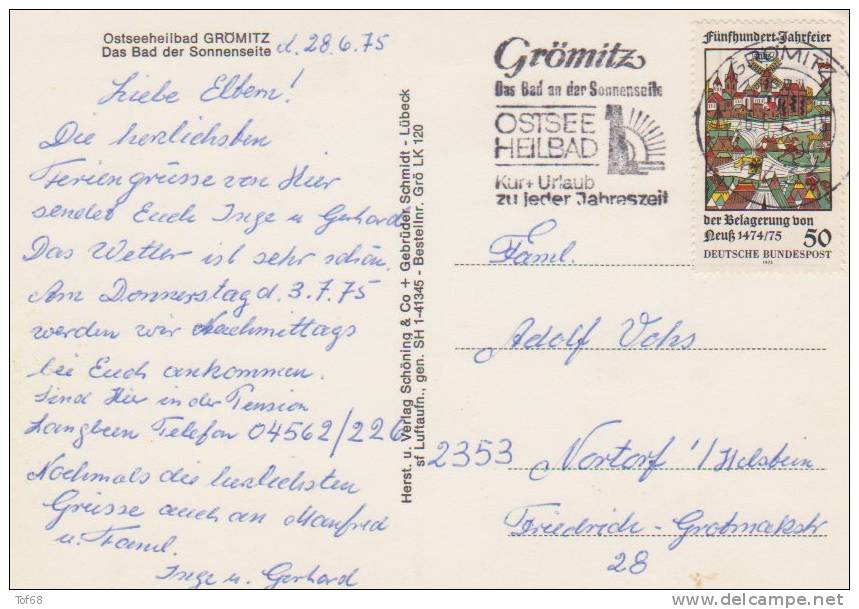 Ostseeheilbad GRÖMITZ
Das Bad der Sonnenseite
d. 28.6.75
Liebe Eltern!
Die herzlichsten
Feriengrüsse von Hier
sendet Euch Inge u Gerhard.
Das Wetter ist sehr schön.
Am Donnerstag d. 3.7.75
werden wir Nachmittags
bei Euch ankommen.
Sind Hier in der Pension
Langbeen Telefon 04562/226
Nochmals die herzlichsten
Grüsse auch an Manfred
u. Faml.
Inge u. Gerhard
Herst. u. Verlag Schöning & Co + Gebrüder Schmidt - Lübeck
sf Luftaufn., gen. SH 1-41345 - Bestellnr. Grö LK 120
Grömitz
Das Bad an der Sonnenseite
OSTSEE
HEILBAD
Kur + Urlaub
zu jeder Jahreszeit
GRÖMITZ
Fünfhundert-Jahrfeier
der Belagerung von
Neuß 1474/75 50
DEUTSCHE BUNDESPOST
1975
Faml.
Adolf Vohs
2353 Nortorf 1/Holstein
Friedrich-
28
Tof68